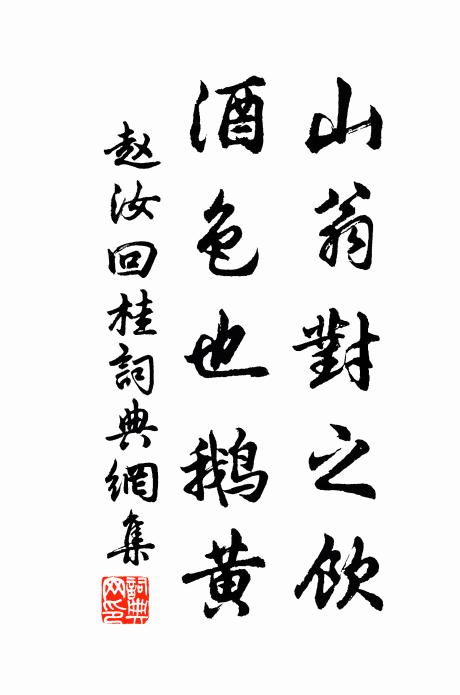 山翁對之飲
酒色也鵝黄
赵汝回桂詞典網集
詞典網印